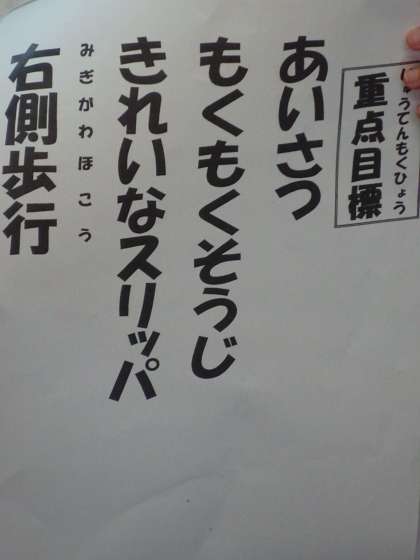 じゅうてんもくひょう
重点目標
あいさつ
もくもくそうじ
きれいなスリッパ
みぎがわほこう
右側歩行